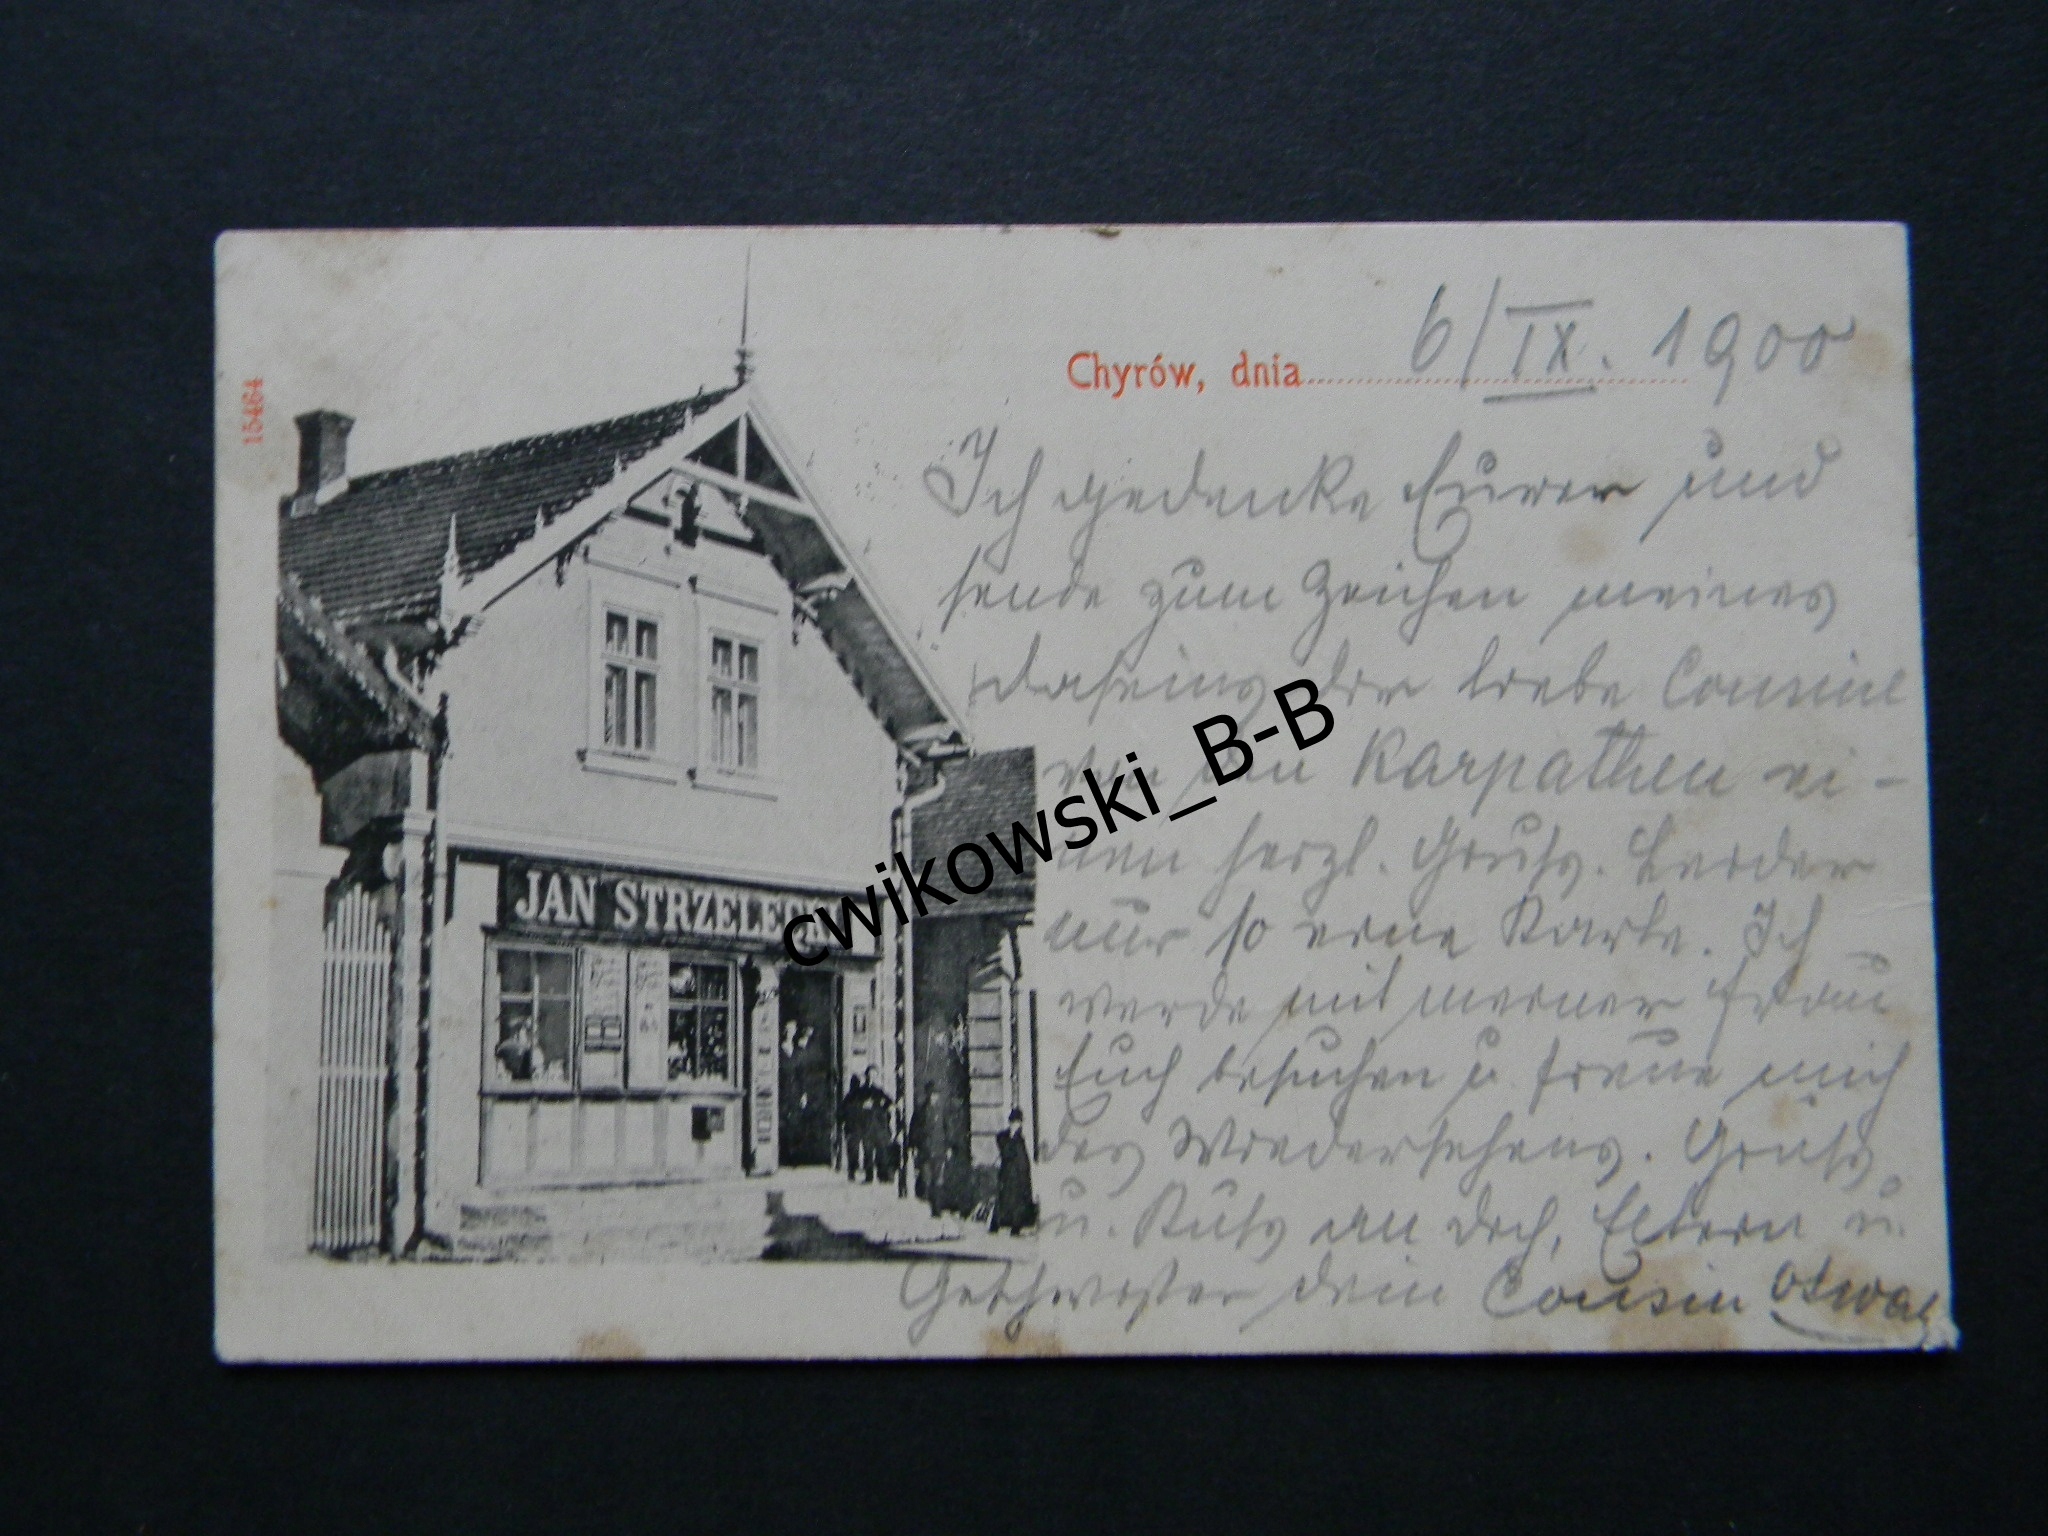 15464
Chyrów, dnia 6/IX. 1900
Ich gedenke Eurer und
sende zum Zeichen meines
Daseins dir liebe Cousine
von den Karpathen ei-
nen herzl. Gruß. Leider
nur so eine Karte. Ich
werde mit meiner Frau
Euch besuchen u. freue mich
des Wiedersehens. Gruß
u. Kuß an dich, Eltern u.
Geschwister dein Cousin Oswald
JAN STRZELECKI
cwikowski_B-B